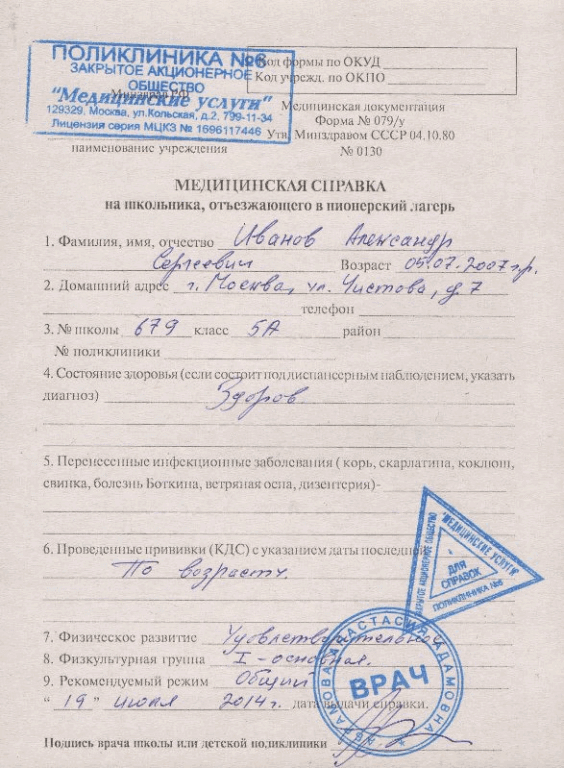 ПОЛИКЛИНИКА №6
ЗАКРЫТОЕ АКЦИОНЕРНОЕ
ОБЩЕСТВО
"Медицинские услуги"
129329, Москва, ул.Кольская, д.2, 799-11-34
Лицензия серия МЦКЗ № 1696117446
Минздрав РФ
наименование учреждения
Код формы по ОКУД
Код учрежд. по ОКПО
Медицинская документация
Форма № 079/у
Утв. Минздравом СССР 04.10.80
№ 0130
МЕДИЦИНСКАЯ СПРАВКА
на школьника, отъезжающего в пионерский лагерь
1. Фамилия, имя, отчество Иванов Александр
Сергеевич Возраст 05.07.2007г.р.
2. Домашний адрес г. Москва, ул. Чистова, д. 7
телефон
3. № школы 679 класс 5А район
№ поликлиники
4. Состояние здоровья (если состоит под диспансерным наблюдением, указать
диагноз) Здоров
5. Перенесенные инфекционные заболевания ( корь, скарлатина, коклюш,
свинка, болезнь Боткина, ветряная оспа, дизентерия)-
6. Проведенные прививки (КДС) с указанием даты последней
По возрасту.
"МЕДИЦИНСКИЕ УСЛУГИ"
ЗАКРЫТОЕ АКЦИОНЕРНОЕ ОБЩЕСТВО
ДЛЯ
СПРАВОК
ПОЛИКЛИНИКА №6
7. Физическое развитие Удовлетворительное
8. Физкультурная группа I - основная.
9. Рекомендуемый режим Общий
" 19 " июля 2014г. дата выдачи справки.
АНАСТАСИЯ АДАМОВНА
ВРАЧ
Подпись врача школы или детской поликлиники